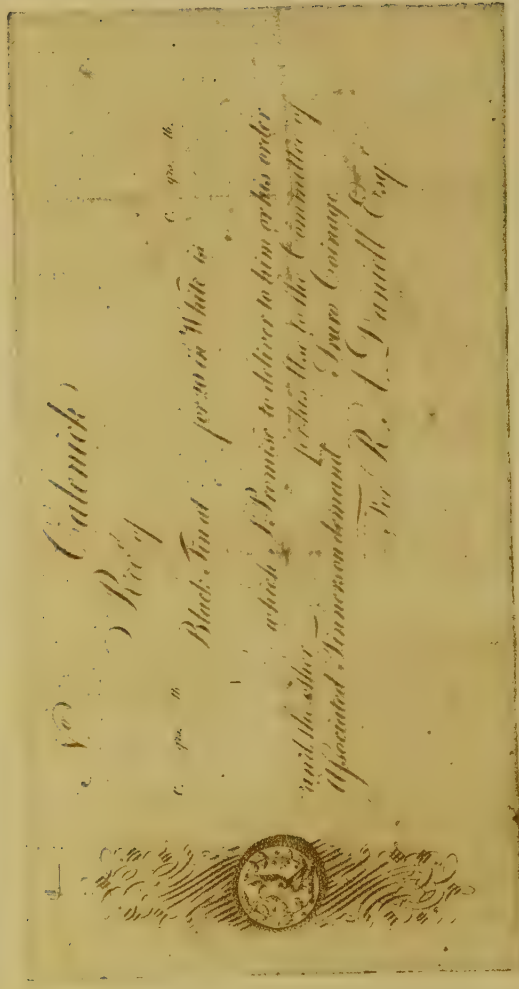 No
Calenick
Recd. of
C. qrs. lb.
Black Tin at for 20 in White is C. qrs. lb.
which I Promise to deliver to him or his order
and the other for his Use, to the Committee of
Associated Tinners on demand Truro Coinage
For R. A. Daniell Esqr.